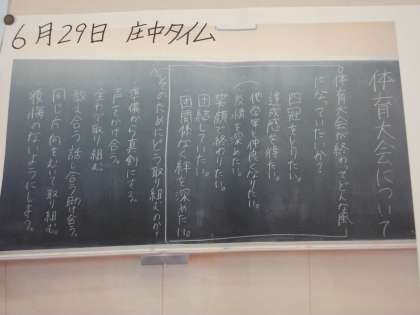 6月29日 庄中タイム
体育大会について
○体育大会が終わってどんな風に
になっていたいか?
四冠をとりたい。
達成感を得たい。
他学年と仲良くなりたい。
友情を深めたい。
笑顔で終わりたい。
団結していたい。
団関係なく絆を深めたい。
そのためにどう取り組むのか?
準備から真剣にする。
声をかけ合う。
全力で取り組む
教え合う、話し合う、助け合う。
同じ方向をむいて取り組む。
後悔のないようにしよう。